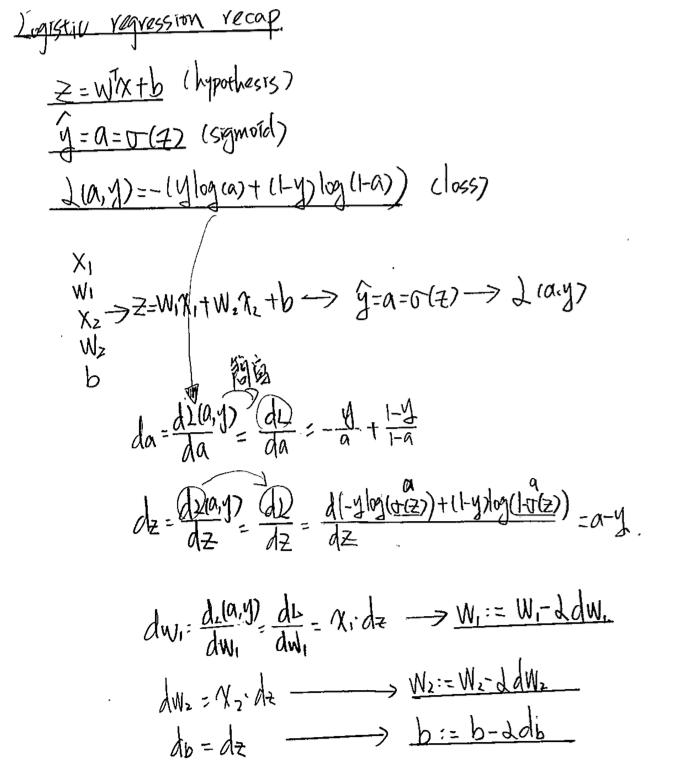 Logistic regression recap
z = wᵀx + b (hypothesis)
ŷ = a = σ(z) (sigmoid)
L(a,y) = -(y log(a) + (1-y) log(1-a)) (loss)
x₁
w₁
x₂ → z = w₁x₁ + w₂x₂ + b → ŷ = a = σ(z) → L(a,y)
w₂
b
da = dL(a,y)/da = dL/da = -y/a + (1-y)/(1-a)
a a
dz = dL(a,y)/dz = dL/dz = d(-y log(σ(z)) + (1-y) log(1-σ(z)))/dz = a-y.
dw₁ = dL(a,y)/dw₁ = dL/dw₁ = x₁·dz → w₁ := w₁ - αdw₁
dw₂ = x₂·dz → w₂ := w₂ - αdw₂
db = dz → b := b - αdb